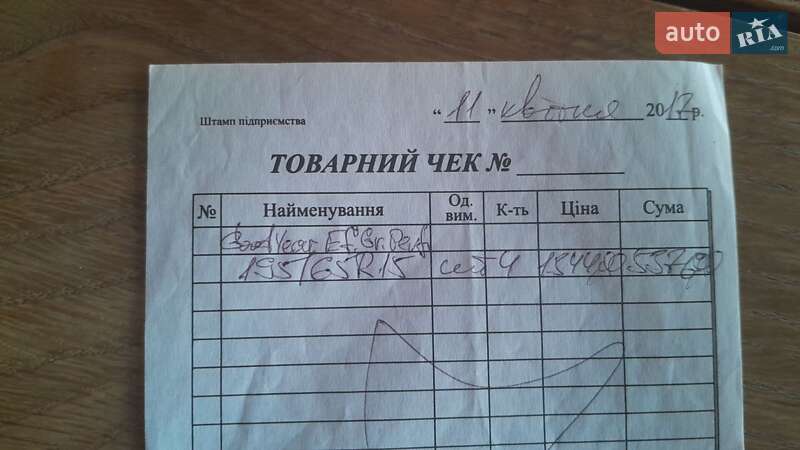 auto RIA .com
Штамп підприємства
“ 11 ” квітня 2017р.
ТОВАРНИЙ ЧЕК №
№ Найменування Од. вим. К-ть Ціна Сума
GoodYear Ef.Gr.Perf
195/65R15 4 1344,00 5376,00